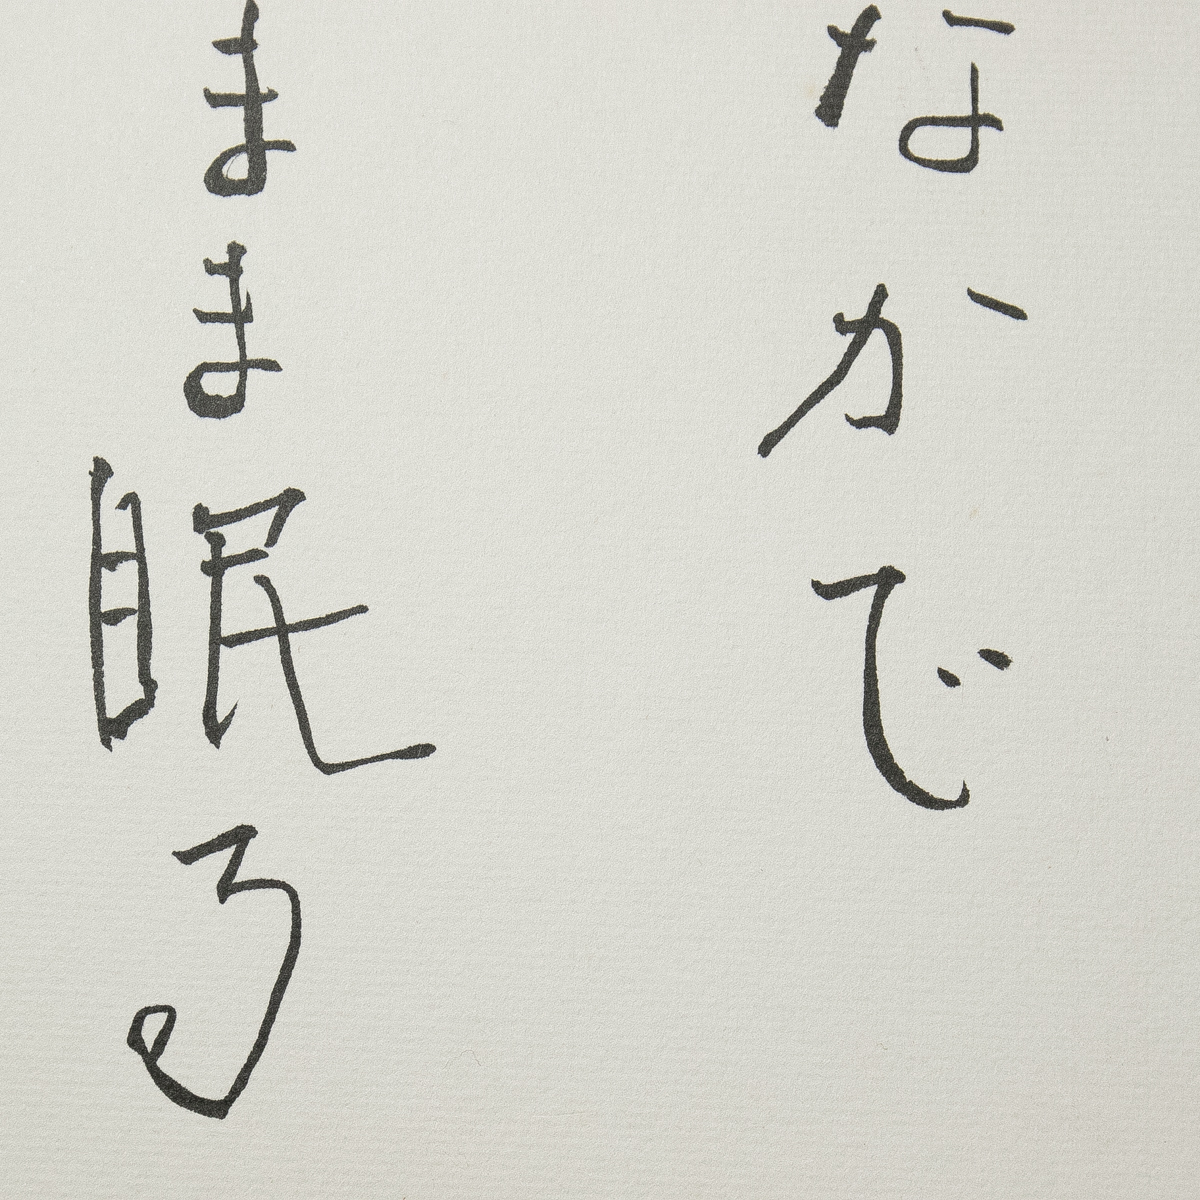 なかで
まま眠る